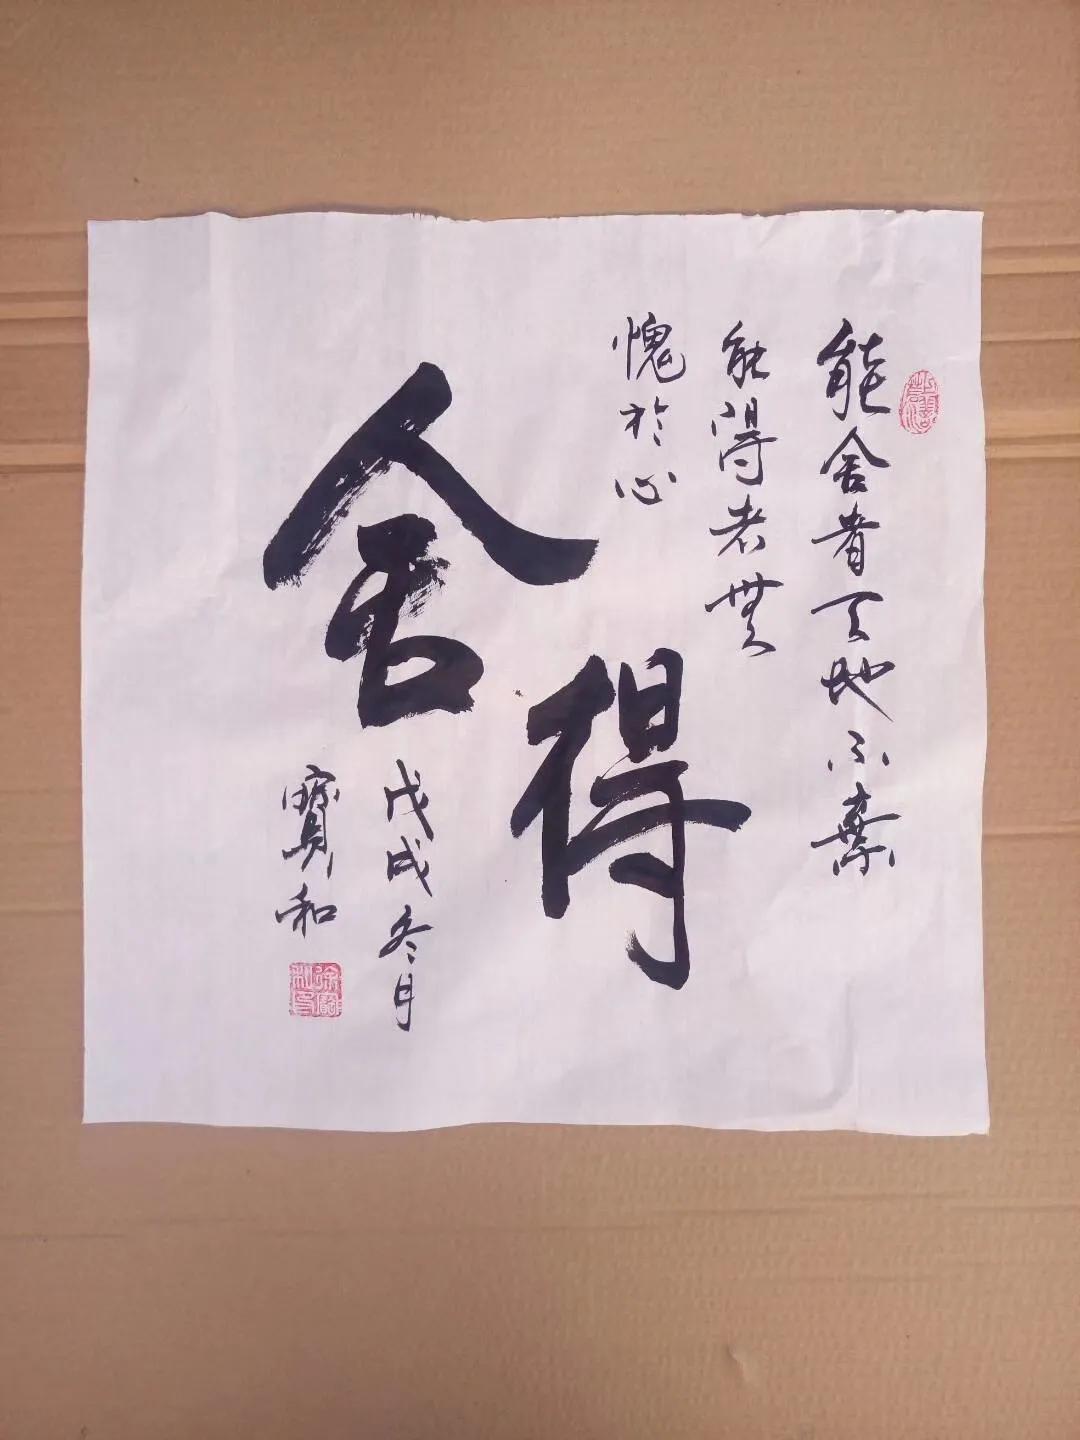 能舍者天地不棄
能得者無
愧於心
舍得
戊戌冬月
寶和
徐寶
和印